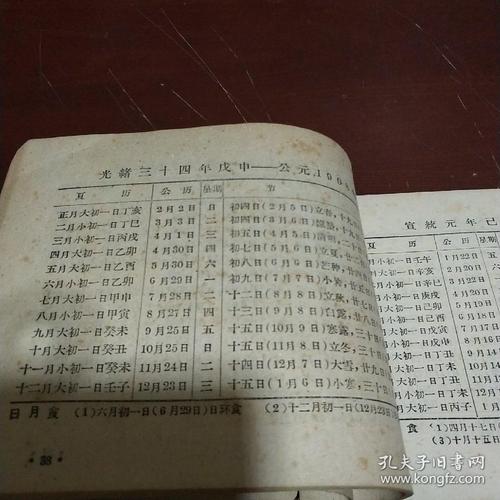 光緒三十四年戊申——公元1908
夏历 公历 星期 节
正月大初一日丁亥 2月2日 日 初四(2月5日)立春,十九
二月小初一日丁巳 3月3日 二 初四(3月6日)惊蛰,十九
三月小初一日丙戌 4月1日 三 初五(4月5日)清明,二十
四月大初一日乙卯 4月30日 四 初七(5月6日)立夏,
五月大初一日乙酉 5月30日 六 初八(6月6日)芒种,
六月小初一日乙卯 6月29日 一 初九(7月7日)小暑,
七月大初一日甲申 7月28日 二 十二日(8月8日)立秋,廿七
八月小初一日甲寅 8月27日 四 十三日(9月8日)白露,廿八
九月大初一日癸未 9月25日 五 十五日(10月9日)寒露,三十
十月大初一日癸丑 10月25日 日 十五日(11月8日)立冬,三十
十一月小初一日癸未 11月24日 二 十四日(12月7日)大雪,廿九
十二月大初一日壬子 12月23日 三 十五日(1月6日)小寒,三十
日月食 (1)六月初一日(6月29日)日环食 (2)十二月初一日(12月23日
·38·
宣統元年己
夏历 公历 星期
月小初一日壬午 1月22日 五
月大初一日辛亥 2月20日
月小初一日辛巳
月大初一日庚戌
月小初一日庚辰
月小初一日己酉
月大初一日戊寅
月小初一日戊申
月大初一日丁丑
月大初一日丁未
月小初一日丁丑
月大初一日丙午
月大初一日丙子
食 (1)四月十七日(
(3)十月十五日
孔夫子旧书网